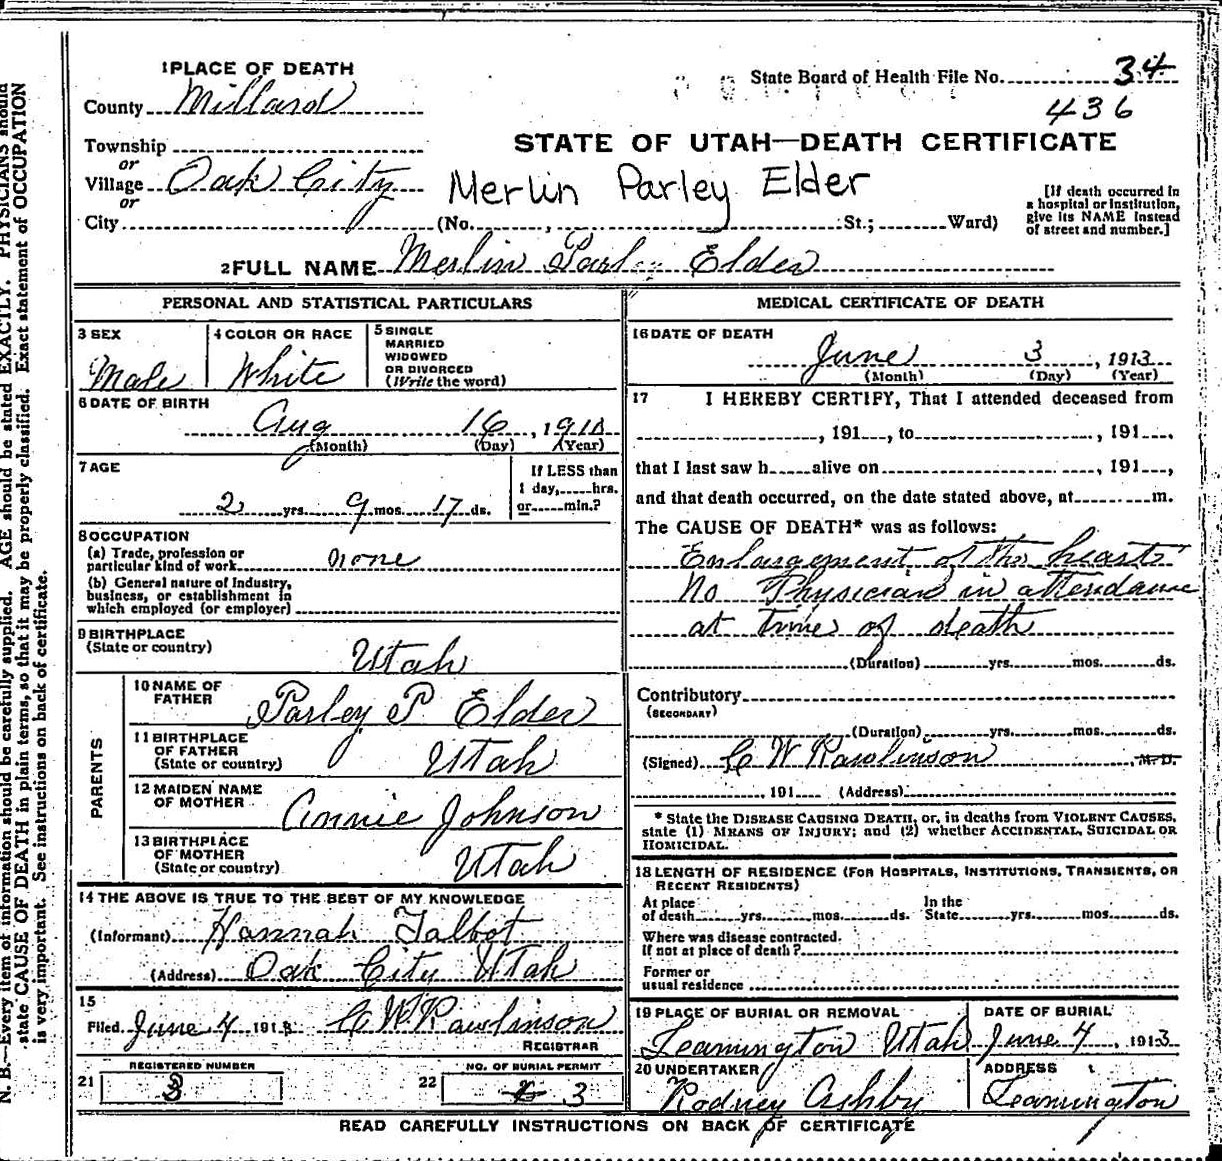 1 PLACE OF DEATH
County Millard
Township
or
Village Oak City
or
City
State Board of Health File No. 34
436
STATE OF UTAH—DEATH CERTIFICATE
Merlin Parley Elder
(No. , St.; Ward)
[If death occurred in
a hospital or institution,
give its NAME instead
of street and number.]
2 FULL NAME Merlin Parley Elder
PERSONAL AND STATISTICAL PARTICULARS
3 SEX
Male
4 COLOR OR RACE
White
5 SINGLE
MARRIED
WIDOWED
OR DIVORCED
(Write the word)
6 DATE OF BIRTH
Aug 16, 1910
(Month) (Day) (Year)
7 AGE
2 yrs. 9 mos. 17 ds.
If LESS than
1 day, hrs.
or min.?
8 OCCUPATION
(a) Trade, profession or
particular kind of work none
(b) General nature of industry,
business, or establishment in
which employed (or employer)
9 BIRTHPLACE
(State or country)
Utah
PARENTS
10 NAME OF
FATHER Parley P Elder
11 BIRTHPLACE
OF FATHER
(State or country) Utah
12 MAIDEN NAME
OF MOTHER Annie Johnson
13 BIRTHPLACE
OF MOTHER
(State or country) Utah
14 THE ABOVE IS TRUE TO THE BEST OF MY KNOWLEDGE
(Informant) Hannah Talbot
(Address) Oak City Utah
15
Filed June 4 1913 C W Rawlinson
REGISTRAR
REGISTERED NUMBER
21 3
NO. OF BURIAL PERMIT
22 3
MEDICAL CERTIFICATE OF DEATH
16 DATE OF DEATH
June 3, 1913
(Month) (Day) (Year)
17 I HEREBY CERTIFY, That I attended deceased from
, 191 , to , 191 ,
that I last saw h alive on , 191 ,
and that death occurred, on the date stated above, at m.
The CAUSE OF DEATH* was as follows:
Enlargement of the heart
No Physician in attendance
at time of death
(Duration) yrs. mos. ds.
Contributory
(SECONDARY)
(Duration) yrs. mos. ds.
(Signed) C W Rawlinson, M. D.
, 191 (Address)
* State the DISEASE CAUSING DEATH, or, in deaths from VIOLENT CAUSES,
state (1) MEANS OF INJURY; and (2) whether ACCIDENTAL, SUICIDAL OR
HOMICIDAL.
18 LENGTH OF RESIDENCE (FOR HOSPITALS, INSTITUTIONS, TRANSIENTS, OR
RECENT RESIDENTS)
At place
of death yrs. mos. ds.
In the
State yrs. mos. ds.
Where was disease contracted.
If not at place of death?
Former or
usual residence
19 PLACE OF BURIAL OR REMOVAL
Leamington Utah
DATE OF BURIAL
June 4, 1913
20 UNDERTAKER
Rodney Ashby
ADDRESS
Leamington
READ CAREFULLY INSTRUCTIONS ON BACK OF CERTIFICATE
N. B.—Every item of information should be carefully supplied. AGE should be stated EXACTLY. PHYSICIANS should
state CAUSE OF DEATH in plain terms, so that it may be properly classified. Exact statement of OCCUPATION
is very important. See instructions on back of certificate.